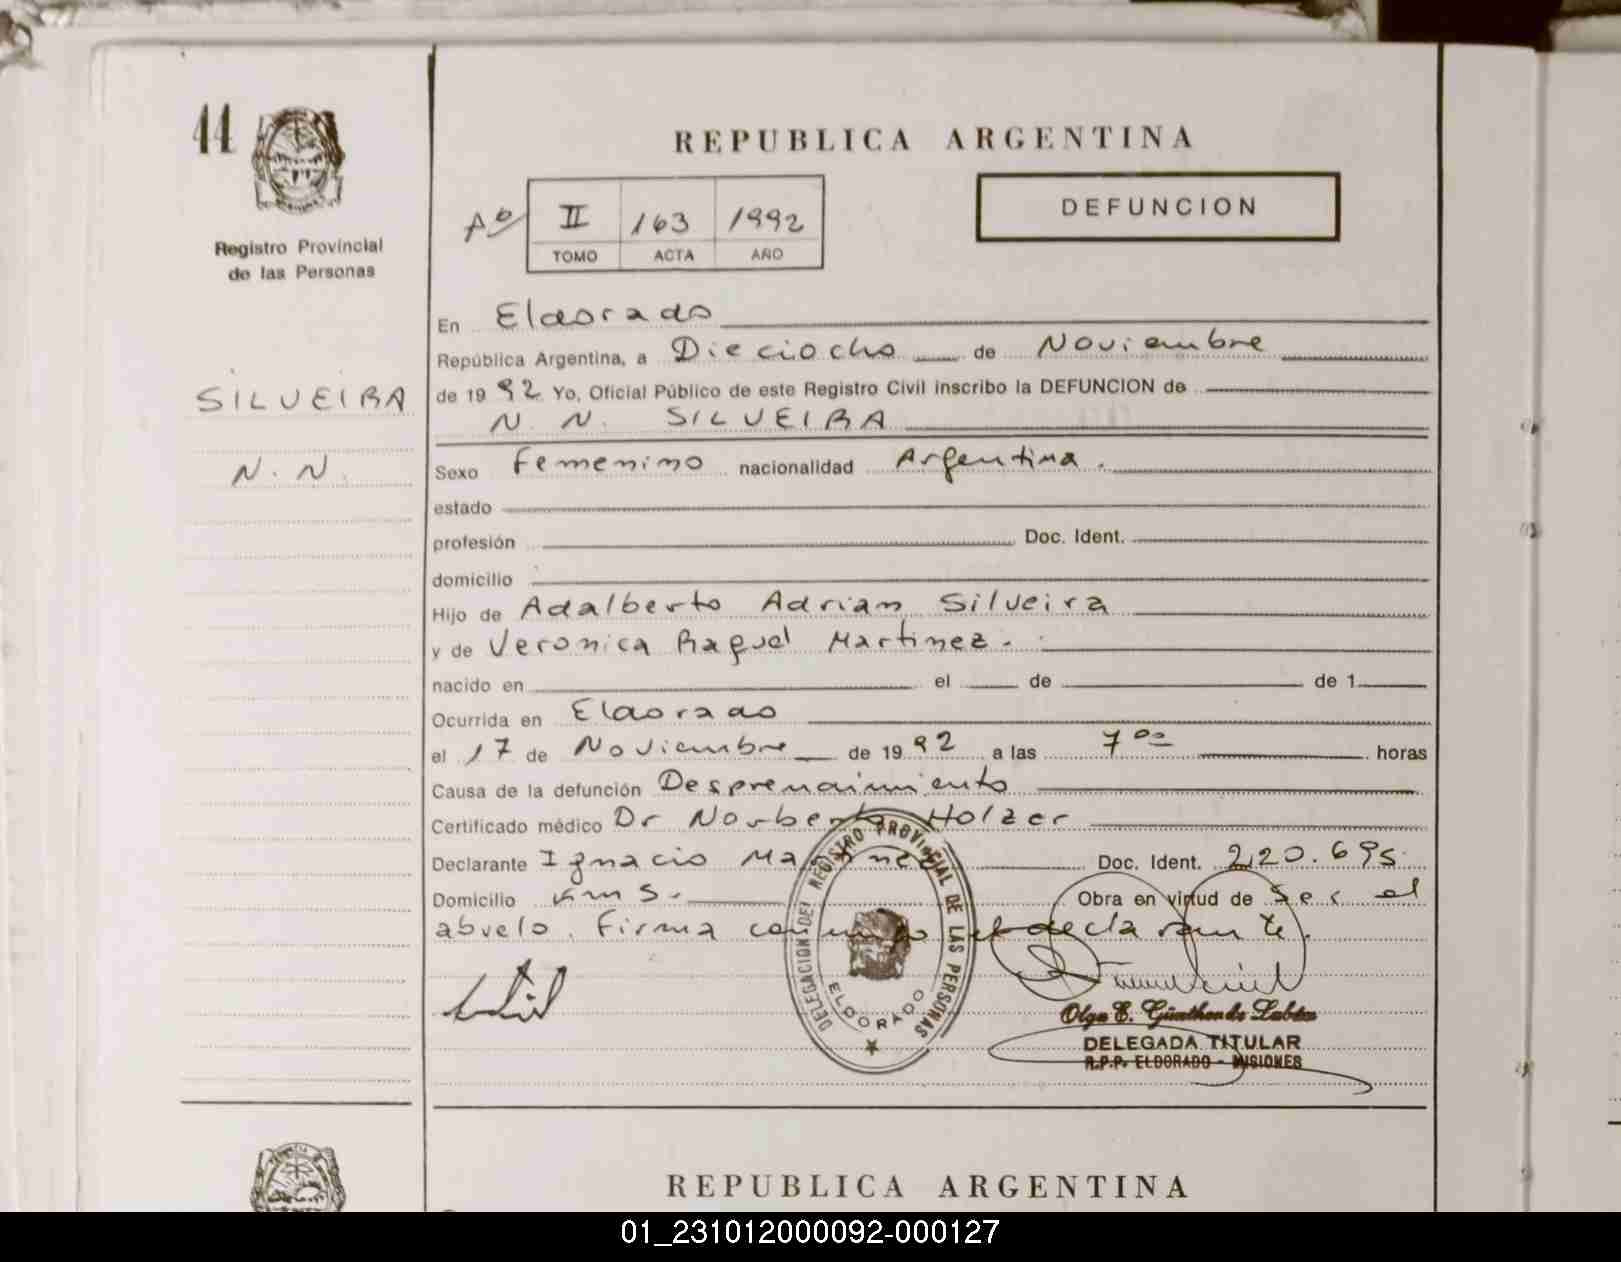 44
REPUBLICA ARGENTINA
II 163 1992
TOMO ACTA AÑO
DEFUNCION
Registro Provincial
de las Personas
SILVEIRA
N. N.
En Eldorado
República Argentina, a Dieciocho de Noviembre
de 1992 Yo, Oficial Público de este Registro Civil inscribo la DEFUNCION de
N. N. SILVEIRA
Sexo Femenino nacionalidad Argentina.
estado
profesión Doc. Ident.
domicilio
Hijo de Adalberto Adrian Silveira
y de Veronica Raquel Martinez.
nacido en el de de 1
Ocurrida en Eldorado
el 17 de Noviembre de 1992 a las 7 00 horas
Causa de la defunción Desprendimiento
Certificado médico Dr Norberto Holzer
Declarante Ignacio Martinez Doc. Ident. 2.220.695.
Domicilio Km 5. Obra en virtud de Ser el
abuelo. Firma conmigo el declarante.
DELEGACION DEL REGISTRO PROVINCIAL DE LAS PERSONAS
ELDORADO
Olga E.
DELEGADA TITULAR
R.P.P. ELDORADO - MISIONES
REPUBLICA ARGENTINA
01_231012000092-000127